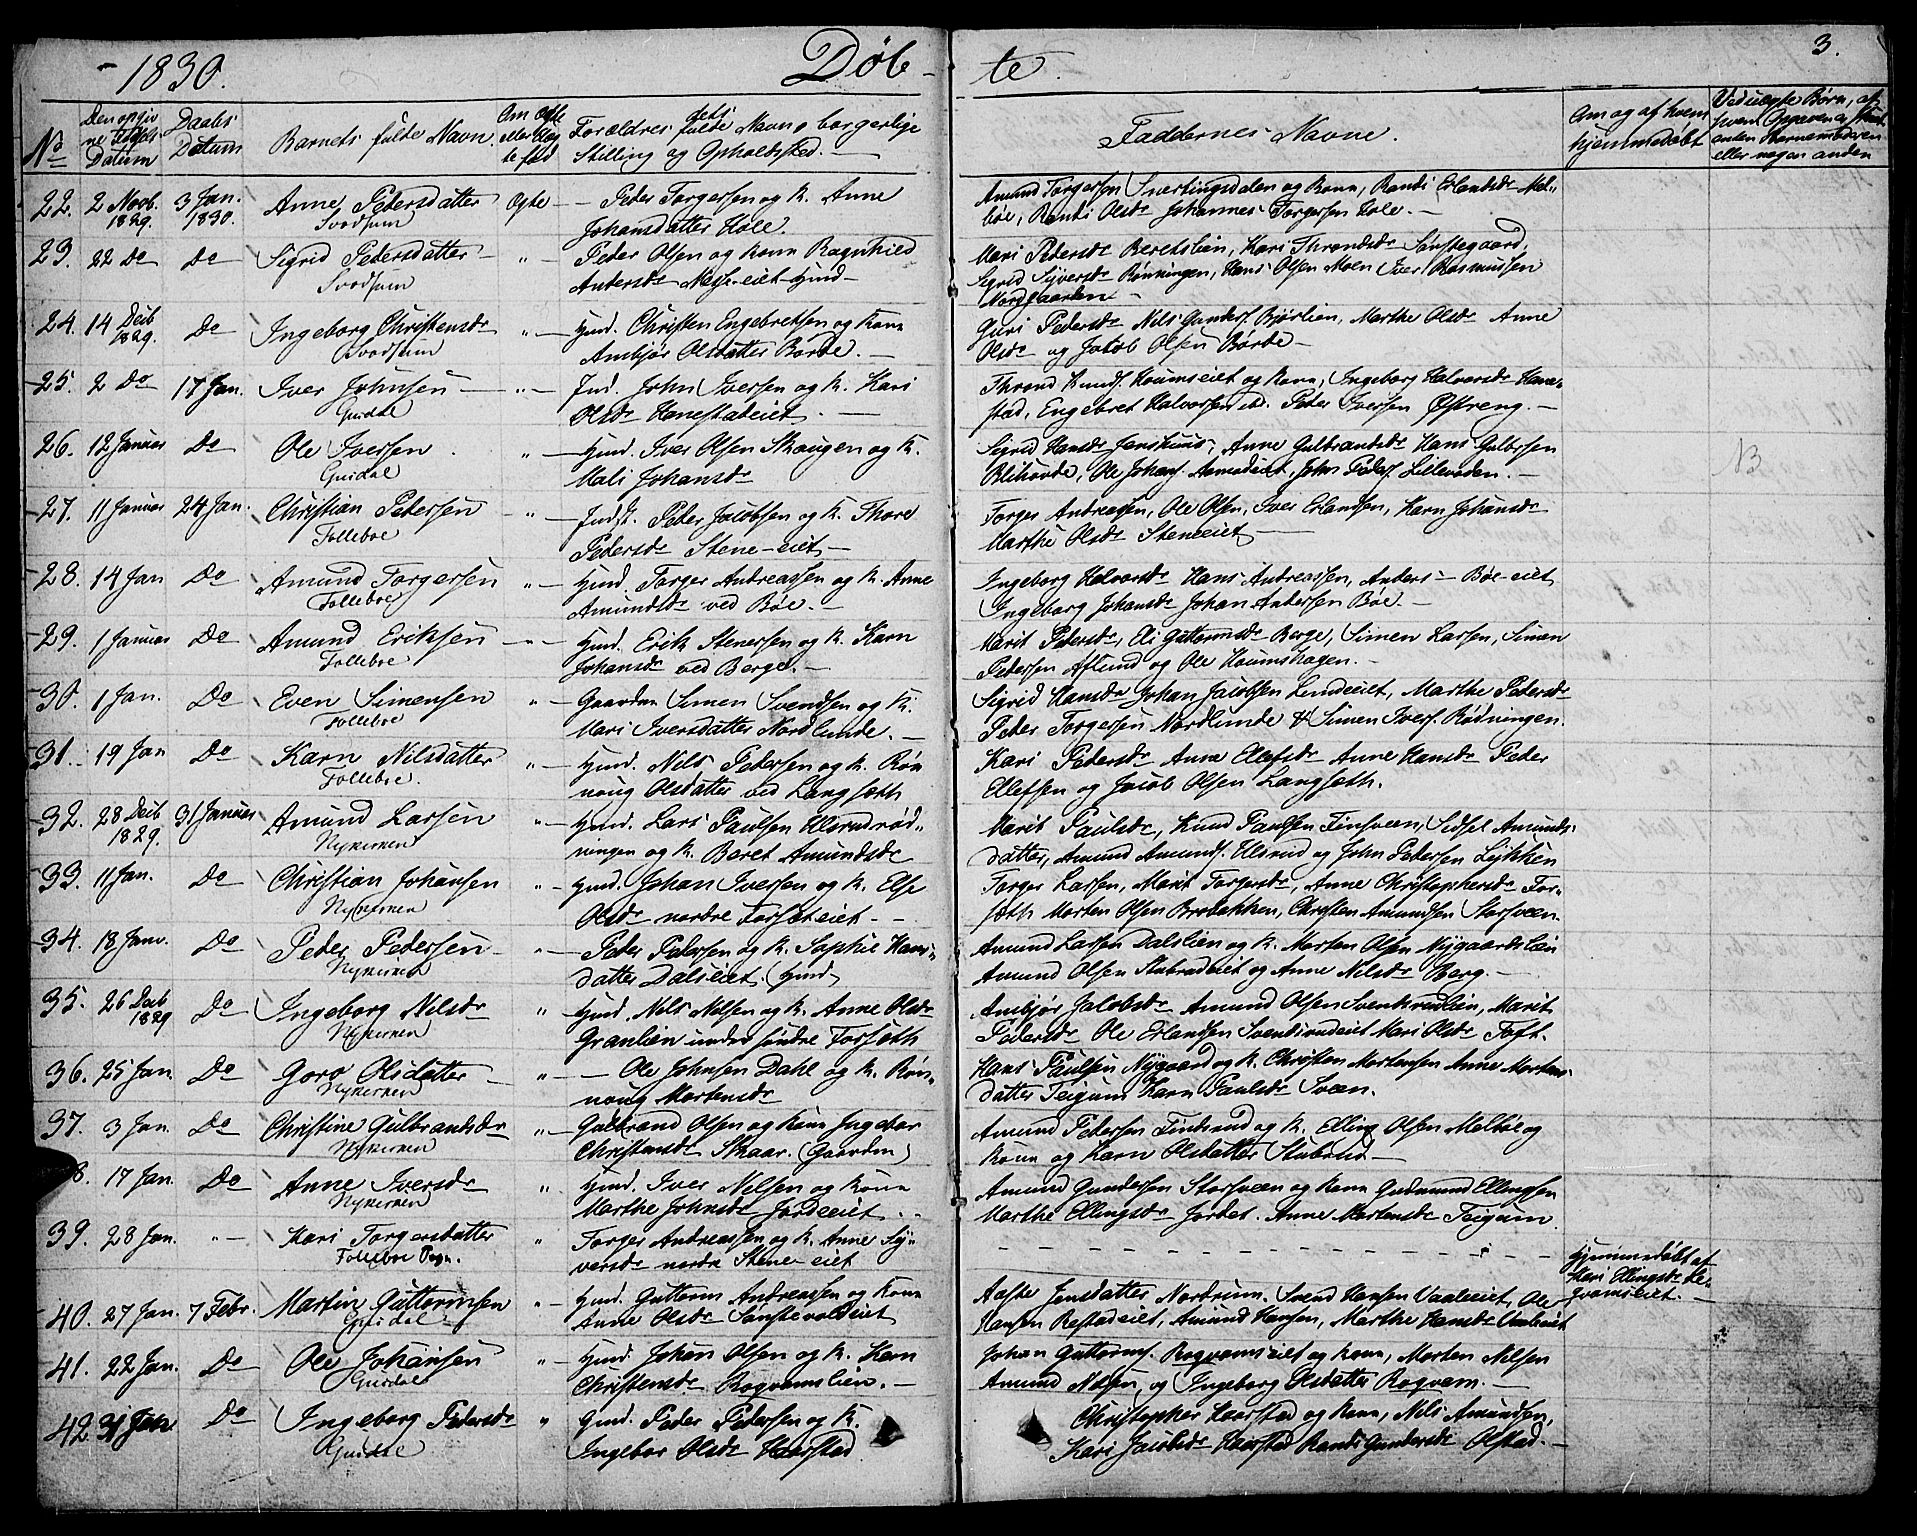 1830.
Døb-
te.
3.
No
Den opgivne Fødsels Datum
Daabs Datum
Barnets fulde Navn
Om ægte eller uægte fød
Forældres fulde Navn, borgerlige Stilling og Opholdssted.
Faddernes Navne.
Om og af hvem hjemmedøbt
Ved uægte Børn, af hvem Opgaven er
anden Barnemoderen
eller nogen anden
22. 2 Novb. 1829. 3 Jan. 1830. Anne Pedersdatter Svodsum Ægte — Peder Torgersen og K. Anne
Johansdatter Hole.
Amund Torgersen Snertingsdalen og Kona, Randi Erlandsdr Mel-
bøe, Randi Olsdr Johannes Torgersen Hole. —
23. 22 Do Do Sigrid Pedersdatter Svodsum "— Peder Olsen og Kona Ragnhild
Andersdr eiet Hund
Mari Pedersdr Beretslien, Kari Throndsdr
Sigrid Syversdr Rønningen, Hans Olsen Moen Iver Rasmussen
Nordgaarden —
24. 14 Decb 1829. Do Ingeborg Christensdr Svodsum "— Hund. Christen Engebretsen og Kona
Ambjør Olsdatter Borde. —
Guri Pedersdr Nils Gunders. Bjørlien, Marthe Olsdr Anne
Olsdr og Jacob Olsen Borde —
25. 2 Do 17 Jan. Iver Johnsen Gusdal "— Ind. John Iversen og K. Kari
Olsdr Hanestadeiet. —
Thrond Knuds. eiet og Kona, Ingeborg Halvorsdr Hane-
stad, Engebret Halvorsen ibd. Peder Iversen Østreng. —
26. 12 Januar Do Ole Iversen Gusdal "— Hund. Iver Olsen Skaugen og K.
Mali Johansdr
Sigrid Hansdr Jenshuus, Anne Gulbrandsdr Hans Gulbrsen
Blihovde, Ole Johans. John Peders. Lilleveden. —
13
27. 11 Januar 24 Jan. Christian Pedersen Folleboe "— Indst. Peder Jacobsen og K. Thore
Pedersdr Stene-eiet —
Torger Andreassen, Ole Olsen, Iver Erlandsen, Karn Johansdr
Marthe Olsdr Steneeiet —
28. 14 Jan Do Amund Torgersen Follebøe "— Hund. Torger Andreassen og K. Anne
Amundsdr ved Bøe. —
Ingeborg Halvorsdr Hans Andreassen, Anders — Bøe-eiet
Ingeborg Johansdr Johan Andersen Bøe. —
29. 1 Januar Do Amund Eriksen Folleboe "— Hund. Erik Stenersen og K. Karn
Johansdr ved Berge. —
Marit Pedersdr, Eli Guttormsdr Berge, Simen Larsen, Simen
Pedersen Aflund og Ole Houmshagen. —
30. 1 Jan. Do Even Simensen Folleboe "— Gaardm Simen Svendsen og K.
Mari Iversdatter Nordlunde. —
Sigrid Hansdr Johan Jacobsen Lundeeiet, Marthe Pedersdr
Peder Torgersen Nordlunde & Simen Ivers. Rødningen.
31. 19 Jan Do Karn Nilsdatter Folleboe. "— Hund. Nils Pedersen og K. Røn
noug Olsdatter ved Langseth
Kari Pedersdr Anne Ellefsdr Anne Hansdr Peder
Ellefsen og Jacob Olsen Langseth.
32. 28 Decb 1829. 31 Januar Amund Larsen Nykirken "— Hund. Lars Paulsen Ulsrudrød-
ningen og K. Beret Amundsdr
Marit Paulsdr, Knud Paulsen Finsveen, Sidsel Amunds-
datter, Amund Amunds. Ulsrud og John Pedersen Lykken
33. 11 Jan. Do Christian Johansen Nykirken "— Hund. Johan Iversen og K. Else
Olsdr nordre Forsæteiet —
Torger Larsen, Marit Torgersdr, Anne Christophersdr For-
sæth Morten Olsen Brobakken, Christen Amundsen Storsveen.
34. 18 Janv. Do Peder Pedersen Nykirken "— Peder Pedersen og K. Sophie Hans-
datter Dalseiet. (Hund)
Amund Larsen Dalslien og K. Morten Olsen Nygaardslien
Amund Olsen Stubrudeiet og Anne Nilsdr Berg. —
35. 26 Decb 1829 Do Ingeborg Nilsdr Nykirken " Hund. Nils Nilsen og K. Anne Olsdr
Granlien under søndre Forsæth
Ambjør Jacobsdr Amund Olsen Svenkrudlien, Marit
Pedersdr Ole Erlandsen eiet Mari Olsdr Toft.
36. 25 Jan. Do Goro Olsdatter Nykirken "— Ole Johnsen Dahl og K. Røn-
noug Mortensdr
Hans Paulsen Nygaard og K. Christen Mortensen Anne Mortens-
datter Teigum Karn Paulsdr Sveen.
37. 3 Jan. Do Christine Gulbrandsdr Nykirken "— Gulbrand Olsen og Kona Ingebor
Christensdr Skaar. (Gaardm)
Amund Pedersen Findsrud og K. Elling Olsen Melbøe og
Kona og Karn Olsdatter Stubrud. —
8. 17 Jan. Do Anne Iversdr Nykirken " Hund. Iver Nilsen og Kona
Marthe Johnsdr Jordeeiet.
Amund Gundersen Storsveen og Kona Gudmund Ellingsen
Marthe Ellingsdr Jordet. Anne Mortensdr Teigum.
39. 28 Jan. "— Kari Torgersdatter Folleboe Sogn. " Torger Andreassen og K. Anne Sy-
versdr nordre Stene-eiet
Hjemmedøbt af
Kari Ellingsdr
40. 27 Jan. 7 Febr. Martin Guttormsen Gusdal "— Hund. Guttorm Andreassen og Kona
Anne Olsdr eiet
Aaste Jensdatter Nordrum. Svend Hansen Vaaleeiet, Ole
Hansen Restadeiet, Amund Hansen, Marthe Hansdr
41. 22 Jan. Do Ole Johansen Gusdal " Hund. Johan Olsen og K. Karn
Christensdr Rogvamslien. —
Johan Guttorms. Rogvamseiet og Kona, Morten Nilsen
Amund Nilsen, og Ingeborg Olsdatter Rogvam. —
42 Jan Do Ingeborg Pedersdr Gusdal " Hund. Peder Pedersen og K.
Ingebor Olsdr Haarstad
Christopher Haarstad og Kona, Nils Amundsen,
Kari Jacobsdr Haarstad Randi Gundersdr Olstad. —